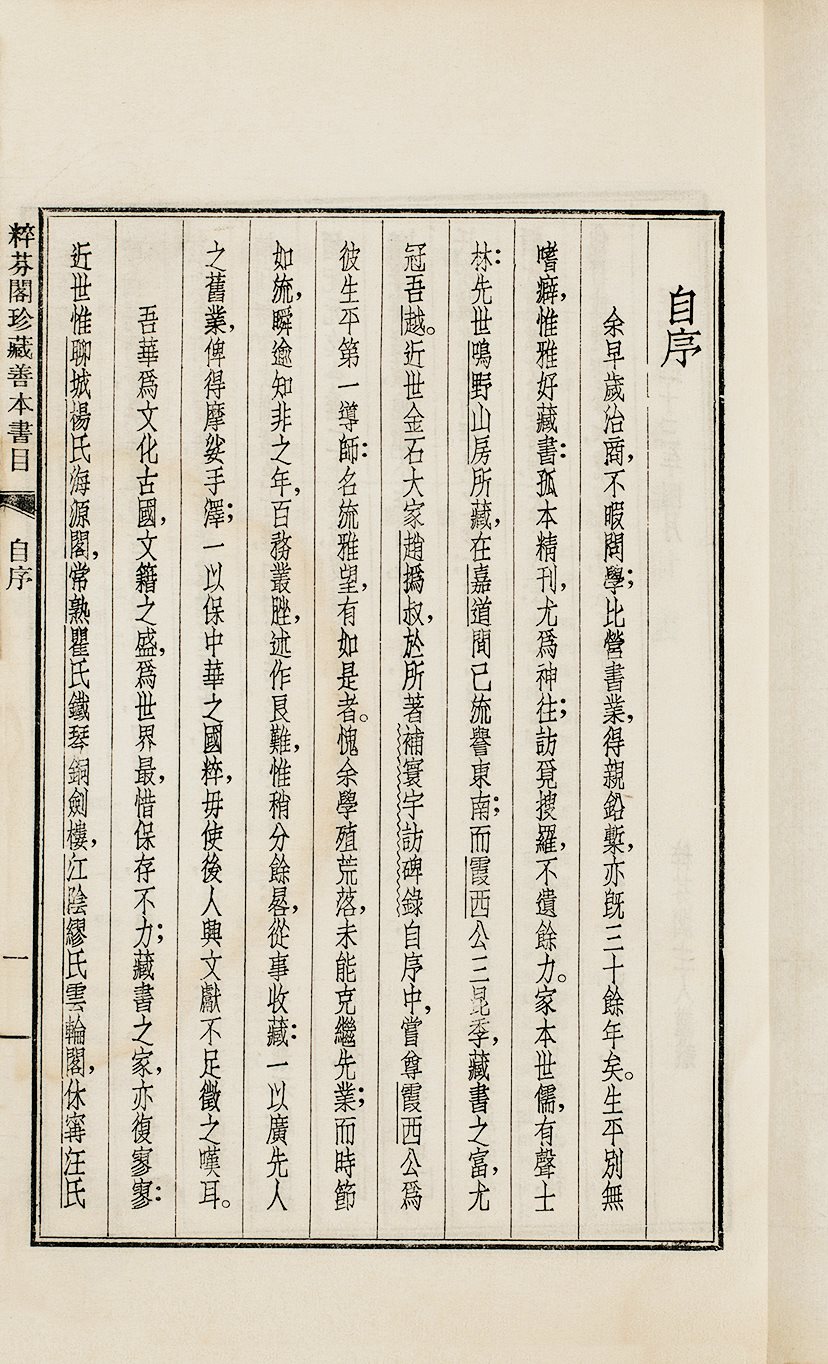 自序
余早歲治商，不暇問學；比營書業，得親鉛槧，亦旣三十餘年矣。生平別無
嗜癖，惟雅好藏書：孤本精刊，尤爲神往；訪覓搜羅，不遺餘力。家本世儒，有聲士
林：先世鳴野山房所藏，在嘉道間已流譽東南；而霞西公三昆季，藏書之富，尤
冠吾越。近世金石大家趙撝叔，於所著補寰宇訪碑錄自序中，嘗尊霞西公爲
彼生平第一導師：名流雅望，有如是者。愧余學殖荒落，未能克繼先業；而時節
如流，瞬逾知非之年，百務叢脞，述作艮難，惟稍分餘晷，從事收藏：一以廣先人
之舊業，俾得摩挲手澤；一以保中華之國粹，毋使後人興文獻不足徵之嘆耳。
吾華爲文化古國，文籍之盛，爲世界最，惜保存不力；藏書之家，亦復寥寥：
近世惟聊城楊氏海源閣，常熟瞿氏鐵琴銅劍樓，江陰繆氏雲輪閣，休寗汪氏
粹芬閣珍藏善本書目
自序
一